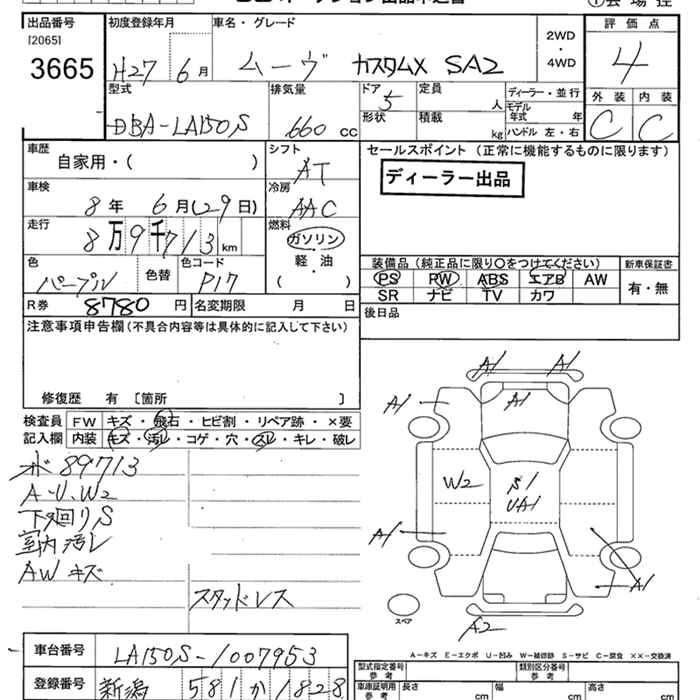 出品番号 初度登録年月 車名・グレード 2WD・4WD 評価点
[2065]
3665 H27年6月 ムーヴ カスタムX SA2 4
型式 排気量 ドア 定員 人 ディーラー・並行 外装 内装
DBA-LA150S 660cc 5 形状 積載 kg モデル年式 年 ハンドル 左・右 C C
車歴 シフト セールスポイント(正常に機能するものに限ります)
自家用・( ) AT ディーラー出品
車検 冷房
8年 6月(29日) AAC
走行 燃料
8万9千713km ガソリン
軽・油
( )
色 色替 色コード 装備品(純正品に限り○をつけてください) 新車保証書
パープル P17 PS PW ABS エアB AW 有・無
SR ナビ TV カワ
R券 8780円 名変期限 月 日 後日品
注意事項申告欄(不具合内容等は具体的に記入して下さい)
修復歴 有 〔箇所 〕
検査員 FW キズ・飛石・ヒビ割・リペア跡・×要
記入欄 内装 キズ・汚レ・コゲ・穴・スレ・キレ・破レ
オド 89713
A・U、W2
下廻りS
室内汚レ
AWキズ
スタッドレス
A1 A1
A1 A1
W2 S1
UA1
A1
A1
スペア
A2
A-キズ E-エクボ U-凹み W-補修跡 S-サビ C-腐食 XX-交換済
車台番号 LA150S-1007953 型式指定番号 参考 類別区分番号 参考
登録番号 新潟 581 か 1828 車庫証明用 参考 長さ cm 幅 cm 高さ cm